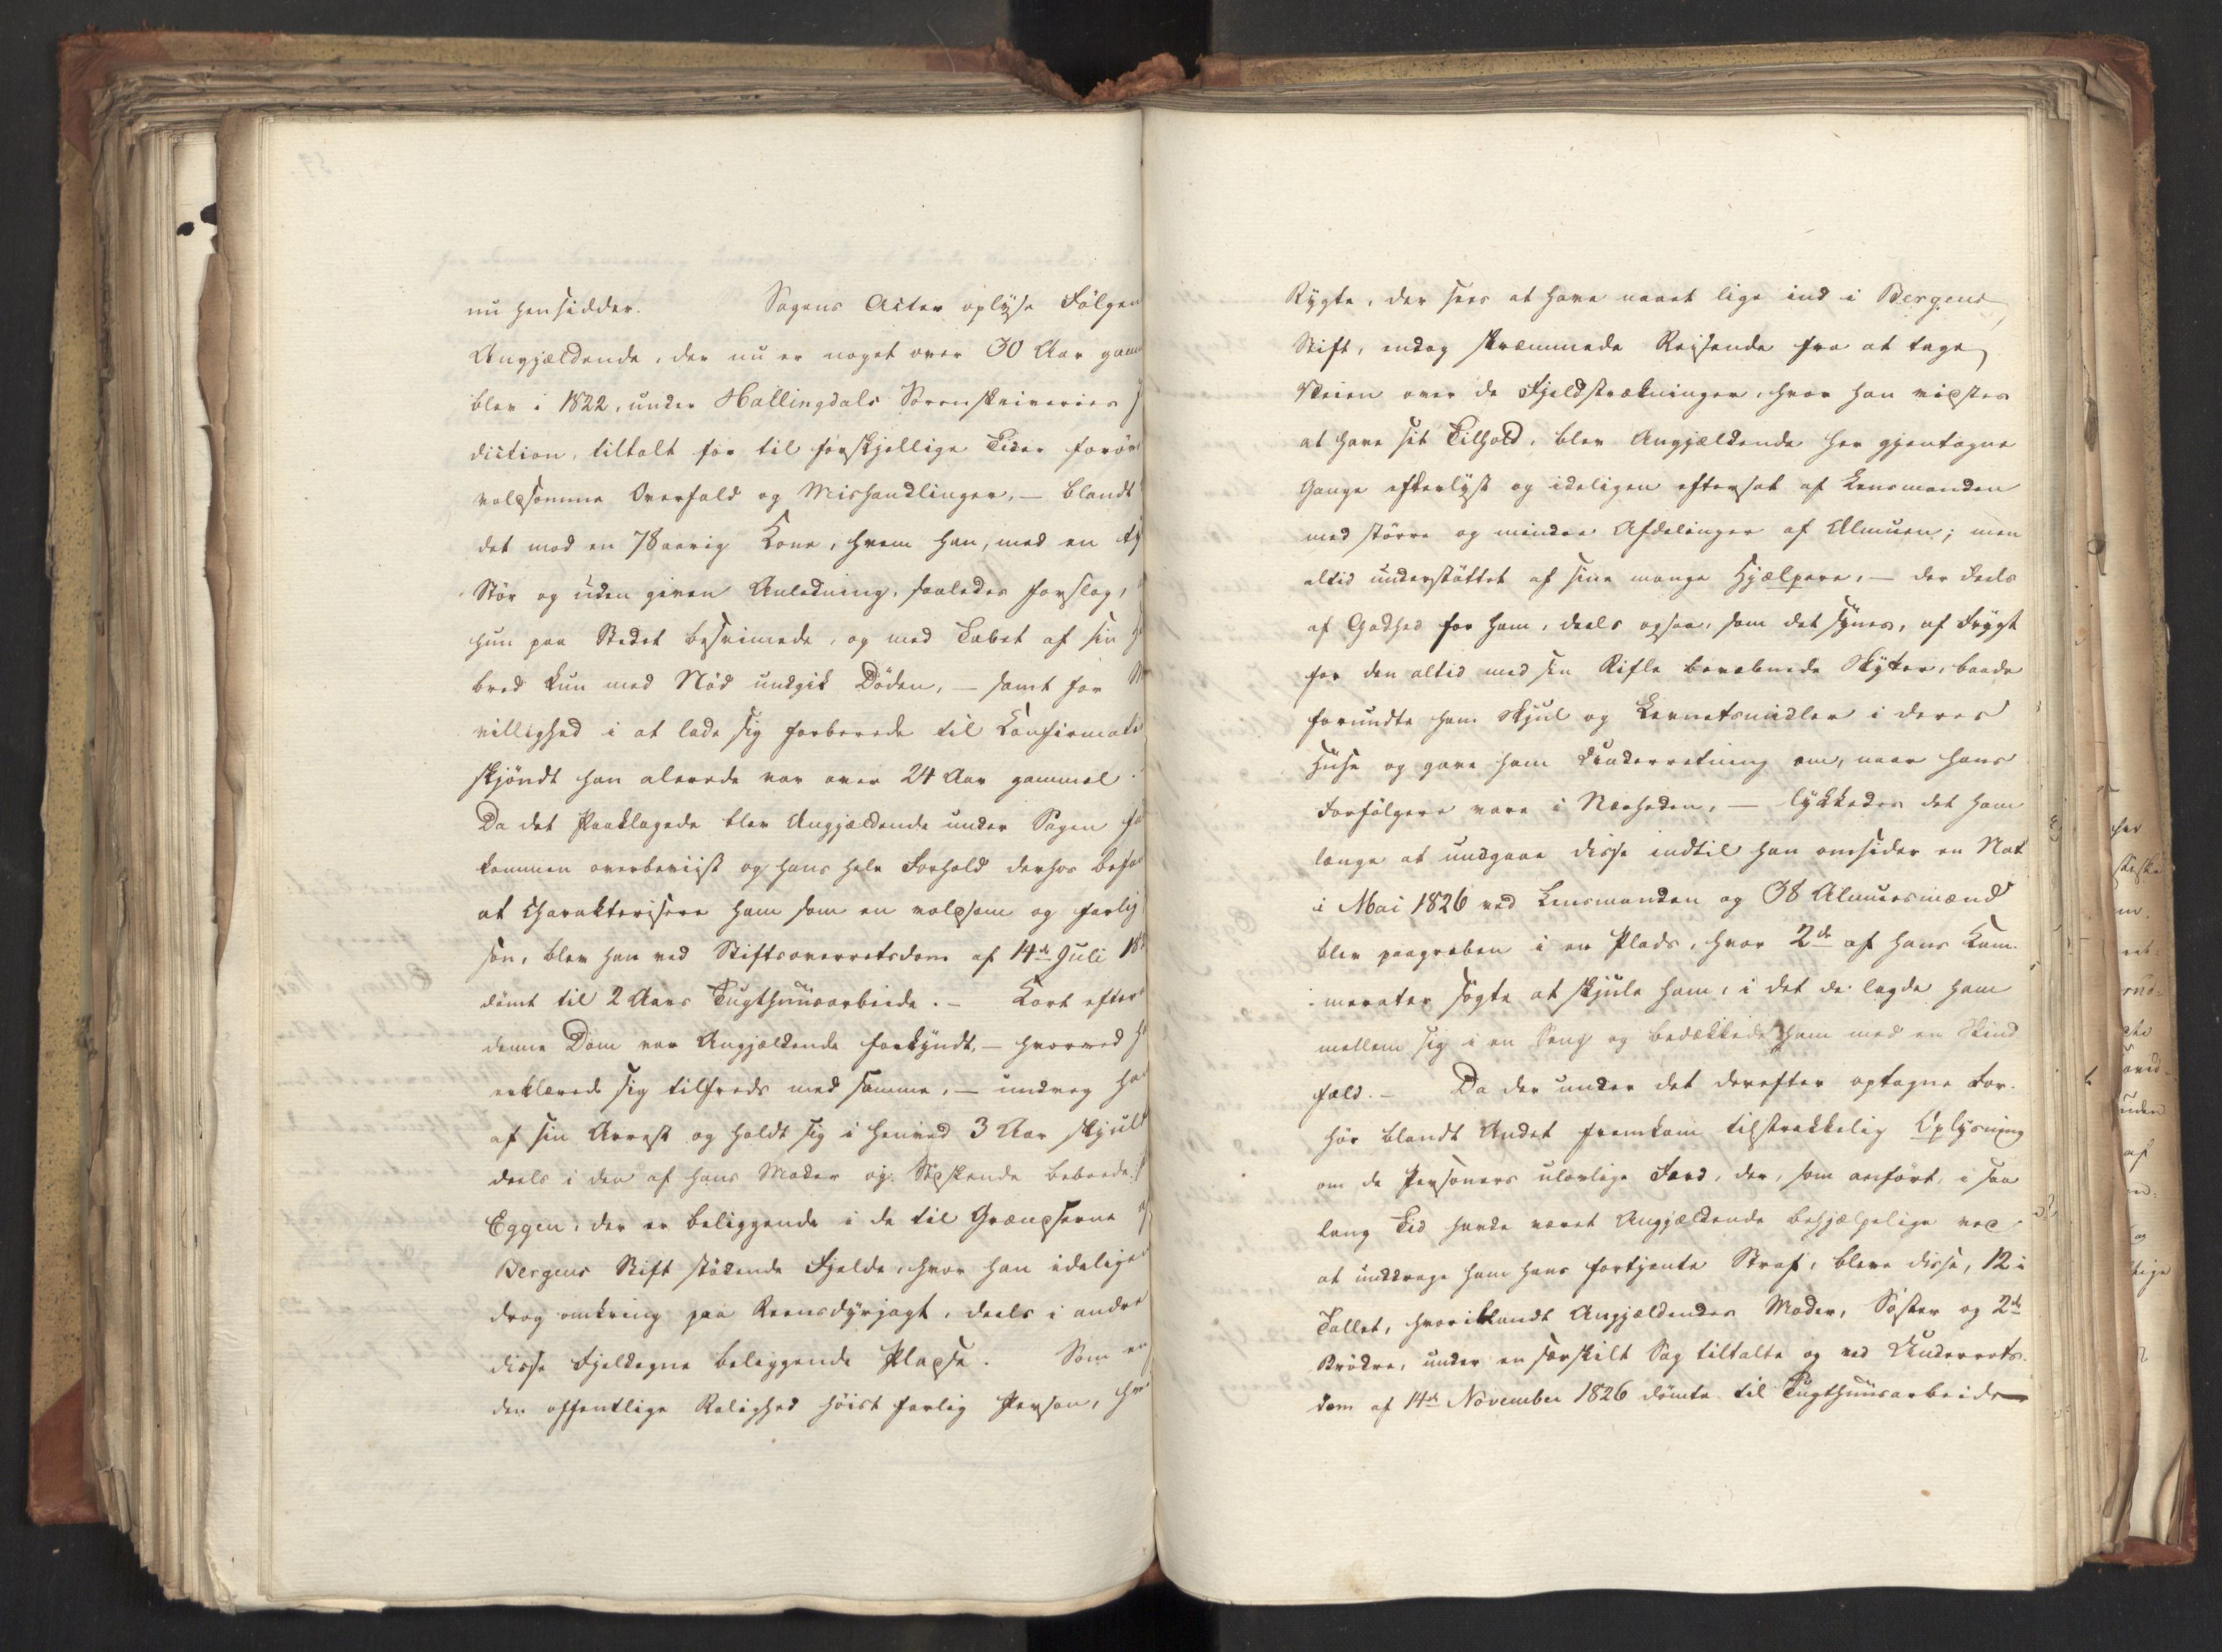 nu hensidder. Sagens Acter oplyse Følgen
Angjældende, der nu er noget over 30 Aar gam
blev i 1822, under Hallingdals Sorenskriveries J
diction, tiltalt for til forskjellige Tider forøv
voldsomme Overfald og Mishandlinger, – blandt
det mod en 78aarig Kone, hvem han, med en ty
Stør og uden given Anledning, saaledes forslog,
hun paa Stedet besvimede, og med Tabet af sin H
bred kun med Nød undgik Døden, – samt for
villighed i at lade sig forberede til Confirmati
skjøndt han alerede var over 24 Aar gammel.
Da det Paaklagede blev Angjældende under Sagen fu
kommen overbeviist og hans hele Forhold derhos befa
at charakterisere ham som en voldsom og farlig
son, blev han ved Stiftsoverretsdom af 14de Juli 18
dømt til 2 Aars Tugthuusarbeide. – Kort efter
denne Dom var Angjældende forkyndt, – hvorved h
erklærede sig tilfreds med samme, – undveg ha
af sin Arrest og holdt sig i henved 3 Aar skjult
deels i den af hans Moder og Søskende beboede
Eggen, der er beliggende i de til Grændserne af
Bergens Stift stødende Fjelde, hvor han idelige
drog omkring paa Reensdyrjagt, deels i andre
disse Fjeldegne beliggende Pladse. Som en
den offentlige Rolighed høist farlig Person, hvi
Rygte, der sees at have naaet lige ind i Bergens
Stift, endog skræmmede Reisende fra at tage
Veien over de Fjeldstrækninger, hvor han vidstes
at have sit Tilhold, blev Angjældende her gjentagne
Gange efterlyst og ideligen eftersat af Lensmanden
med større og mindre Afdelinger af Almuen; men
altid understøttet af sine mange Hjælpere, – der deels
af Godhed for ham, deels ogsaa, som det synes, af Frygt
for den altid med sin Rifle bevæbnede Skytter, baade
forundte ham Skjul og Levnetsmidler i deres
Huse og gave ham Underretning om, naar hans
Forfølgere vare i Nærheden, – lykkedes det ham
længe at undgaae disse indtil han omsider en Nat
i Mai 1826 ved Lensmanden og 38 Almuesmænd
blev paagreben i en Plads, hvor 2de af hans Kam-
merater søgte at skjule ham, i det de lagde ham
mellem sig i en Seng og bedækkede ham med en Skind
fæld. – Da der under det derefter optagne For-
hør blandt Andet fremkom tilstrækkelig Oplysning
om de Personers ulovlige Færd, der, som anført, i saa
lang Tid havde været Angjældende behjælpelige ved
at unddrage ham hans fortjente Straf, bleve disse, 12 i
Tallet, hvoriblandt Angjældendes Moder, Søster og 2de
Brødre, under en særskilt Sag tiltalte og ved Underrets-
dom af 14de November 1826 dømte til Tugthuusarbeide